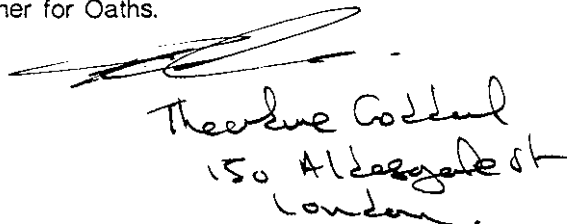 ner for Oaths.
Theodore Goddard
150 Aldersgate St
London.